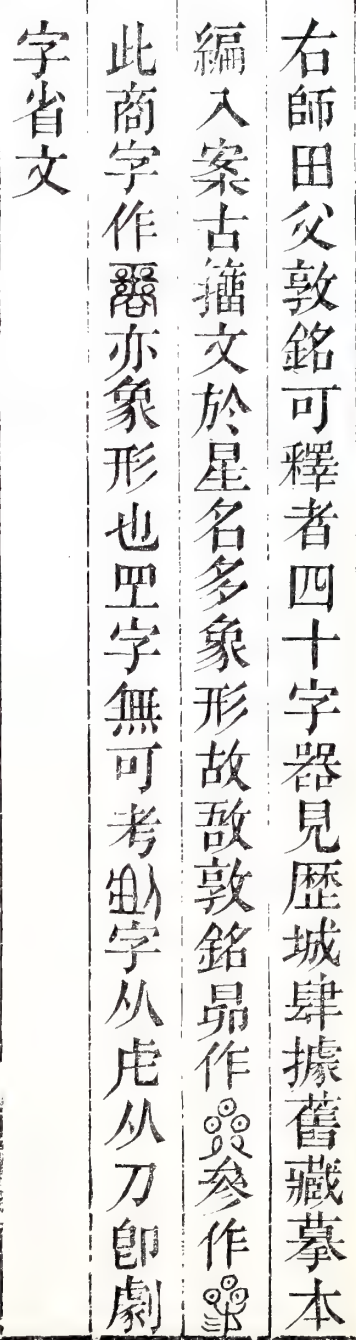 右師田父敦銘可釋者四十字器見歴城肆據舊藏摹本
編入案古籀文於星名多象形故敔敦銘昴作參作
此商字作亦象形也字無可考字从虍从刀卽劇
字省文